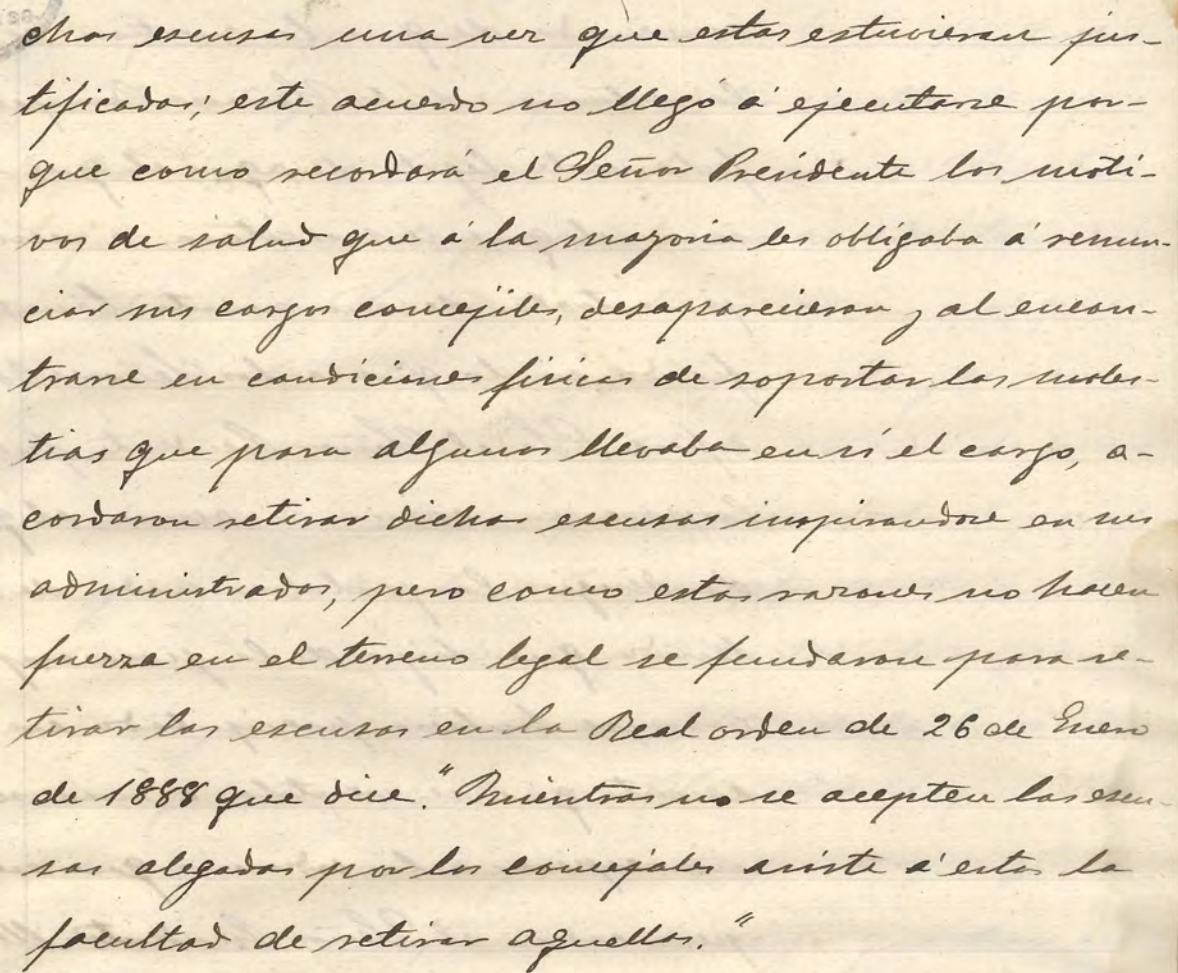 chas escusas una vez que estas estuvieran jus-
tificadas; este acuerdo no llegó á ejecutarse por-
que como recordará el Señor Presidente los moti-
vos de salud que á la mayoria les obligaba á renun-
ciar sus cargos concejiles, desaparecieron y al encon-
trarse en condiciones fisicas de soportar las moles-
tias que para algunos llevaba en si el cargo, a-
cordaron retirar dichas escusas inspirandose en sus
administrados, pero como estas razones no hacen
fuerza en el terreno legal se fundaron para re-
tirar las escusas en la Real orden de 26 de Enero
de 1888 que dice. "Mientras no se acepten las escu-
sas alegadas por los concejales asiste á estos la
facultad de retirar aquellas."